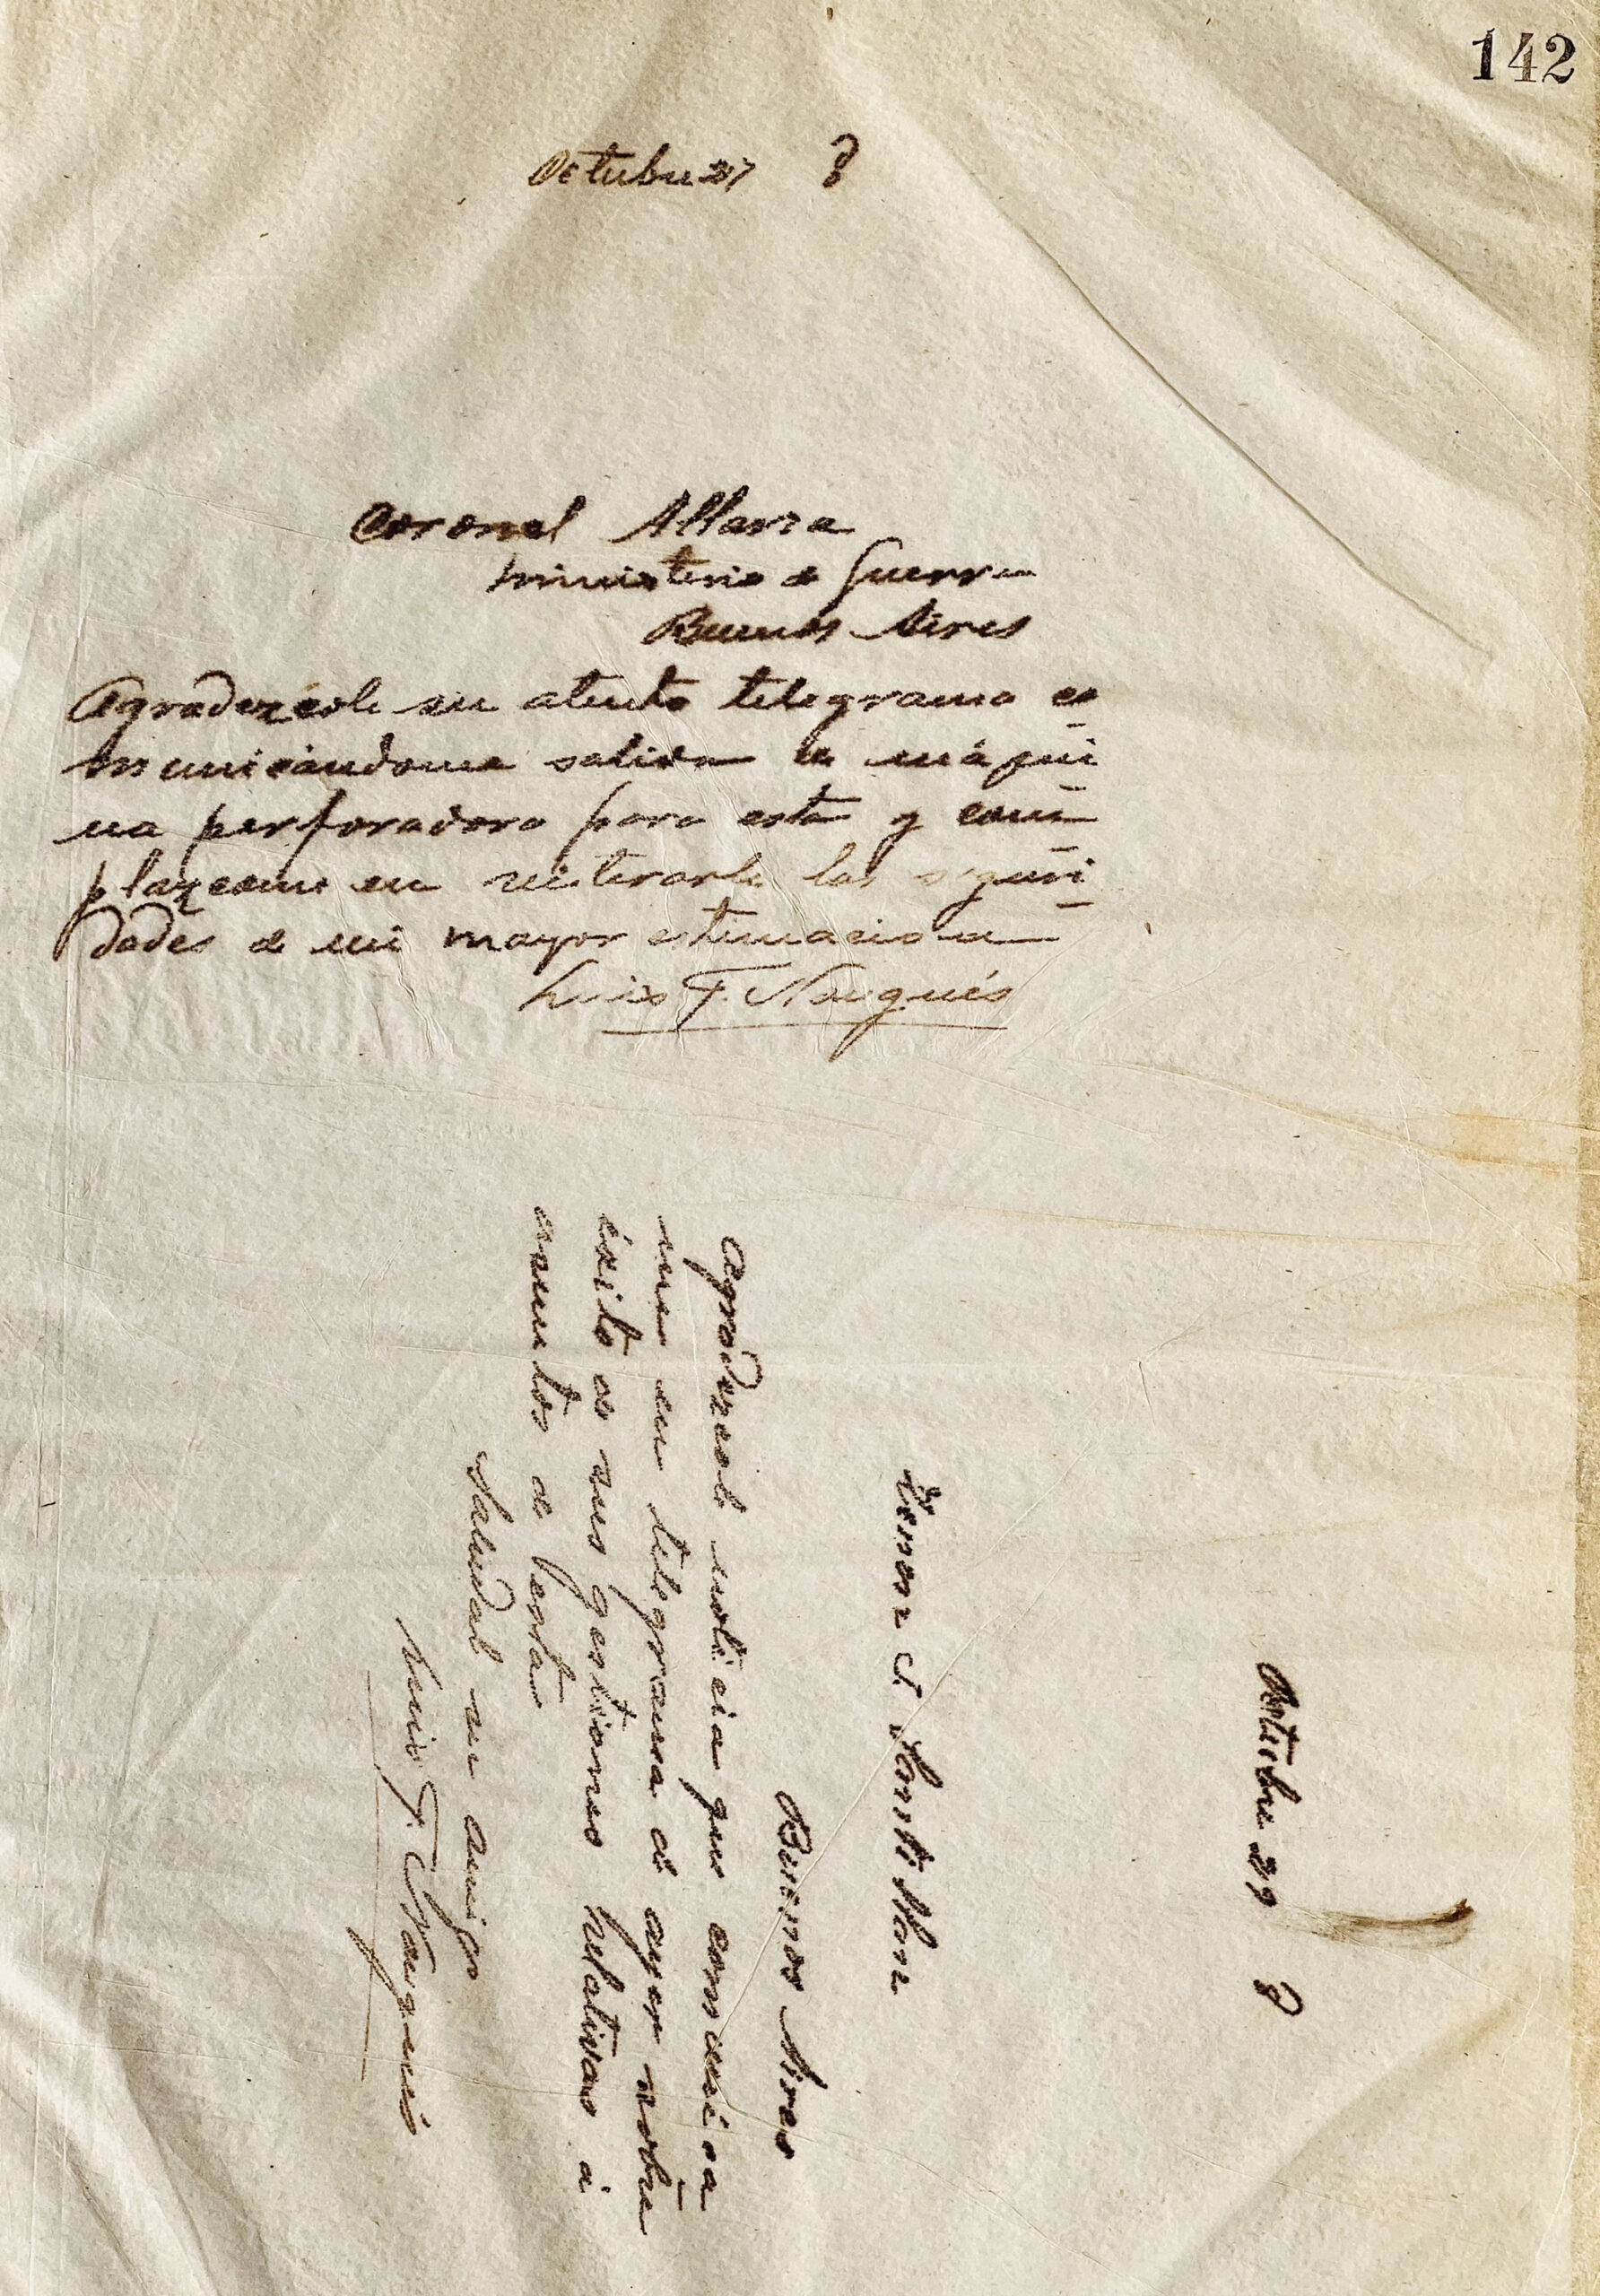 142
Octubre 27 8
Coronel Allaria
Ministerio de Guerra
Buenos Aires
Agradezcole su atento telegrama co
municándome salida de máqui
na perforadora para esta y com
plazcome en reiterarle las seguri
dades de mi mayor estimacion
Luis F. Nougués
Octubre 29 8
Señor J. Santillan
Buenos Aires
Agradezcole noticia que comunica
me en telegrama de ayer sobre
éxito de sus gestiones relativas á
asuntos de
Saludal su amigo
Luis F. Nougués